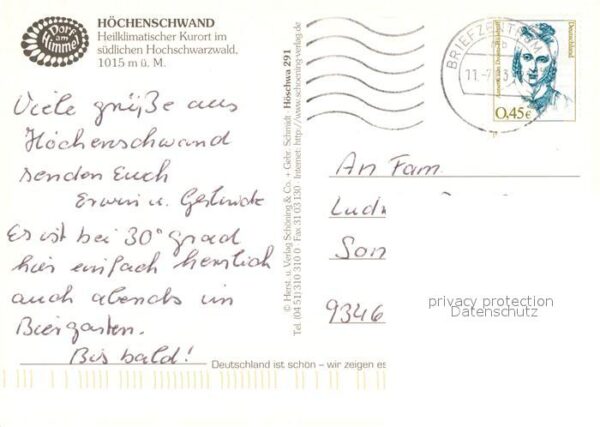 Dorf am Himmel
HÖCHENSCHWAND
Heilklimatischer Kurort im
südlichen Hochschwarzwald,
1015 m ü. M.
Viele grüße aus
Höchenschwand
senden Euch
Erwin u. Gertrude
Es ist bei 30° grad
hier einfach herrlich
auch abends im
Biergarten.
Bis bald!
© Herst. u. Verlag Schöning & Co. + Gebr. Schmidt · Höschwa 291
Tel. (04 51) 310 310 0 · Fax 31 03 130 · Internet: http://www.schoening-verlag.de
Deutschland ist schön – wir zeigen es
BRIEFZENTRUM
11.-7
Deutschland
0,45€
An Fam.
Ludw
Son
9346
privacy protection
Datenschutz